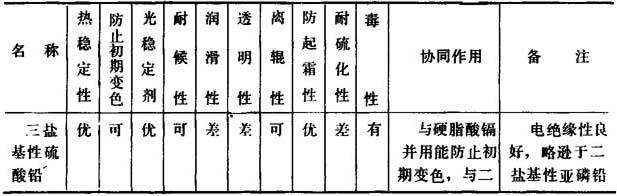 名 称 热稳定性 防止初期变色 光稳定剂 耐候性 润滑性 透明性 离辊性 防起霜性 耐硫化性 毒性 协同作用 备 注
三盐 优 可 优 可 差 差 可 优 差 有 与硬脂酸镉 电绝缘性良
基性硫 并用能防止初 好，略逊于二
酸铅 期变色，与二 盐基性亚磷铅